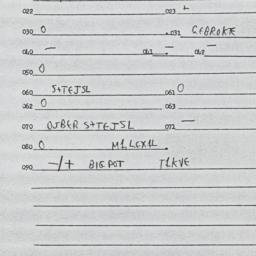 022 023 +
030 0 031 GEBROKE
040 — 041 — 042 —
050 0
060 S+TEJSL 061 0
062 0 063
070 OJBER S+TEJSL 072 —
080 0
090 —/+ BIG POT T1KVE